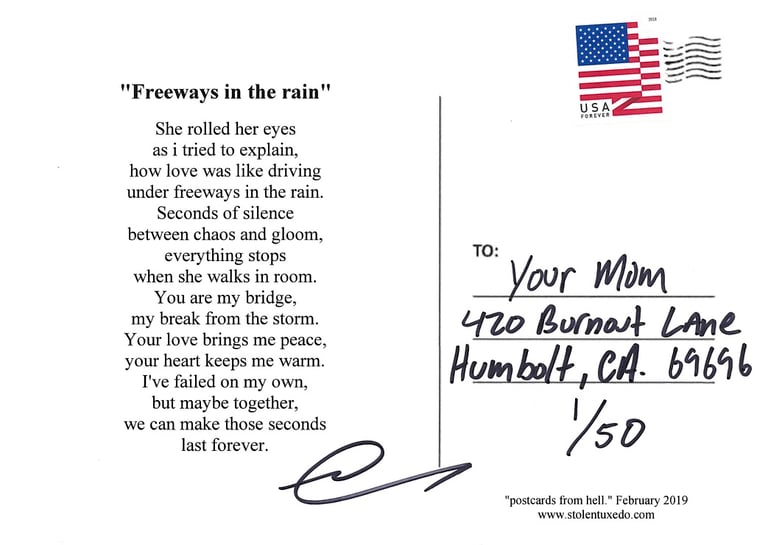 "Freeways in the rain"
She rolled her eyes
as i tried to explain,
how love was like driving
under freeways in the rain.
Seconds of silence
between chaos and gloom,
everything stops
when she walks in room.
You are my bridge,
my break from the storm.
Your love brings me peace,
your heart keeps me warm.
I've failed on my own,
but maybe together,
we can make those seconds
last forever.
USA
FOREVER
TO:
Your Mom
420 Burnout Lane
Humbolt, CA. 69696
1/50
"postcards from hell." February 2019
www.stolentuxedo.com